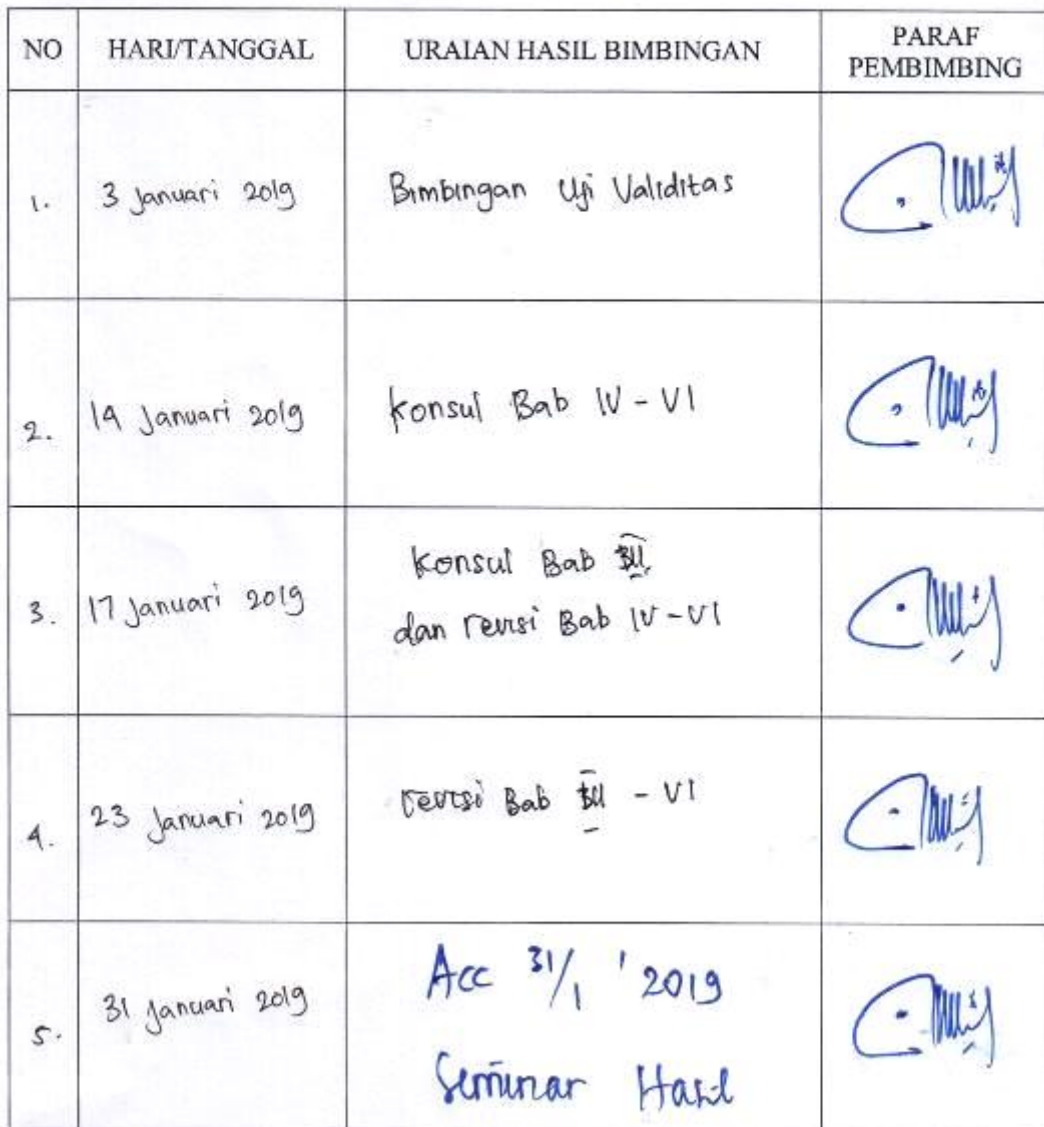 NO HARI/TANGGAL URAIAN HASIL BIMBINGAN PARAF PEMBIMBING
1. 3 Januari 2019 Bimbingan Uji Validitas
2. 14 Januari 2019 Konsul Bab IV - VI
3. 17 Januari 2019 Konsul Bab III
dan revisi Bab IV - VI
4. 23 Januari 2019 revisi Bab III - VI
5. 31 Januari 2019 Acc 31/1 ' 2019
Seminar Hasil